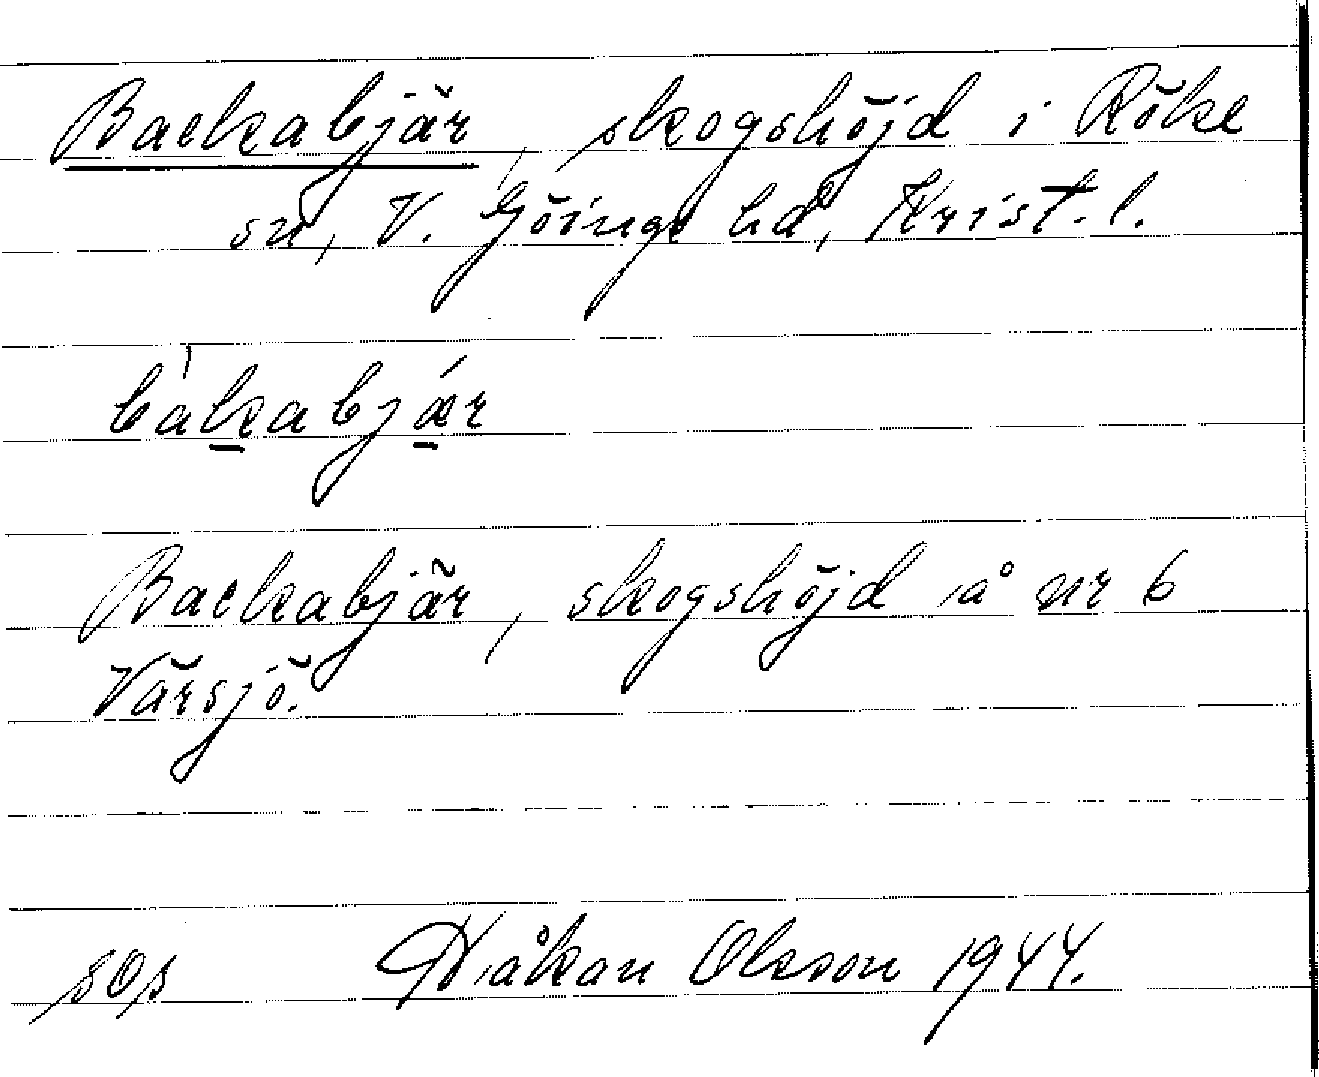 Backabjär, skogshöjd i Röke
sn, V. Göinge hd, Krist. l.
bàkabjǽr
Backabjär, skogshöjd å nr 6
Värsjö.
Håkan Olsson 1944.